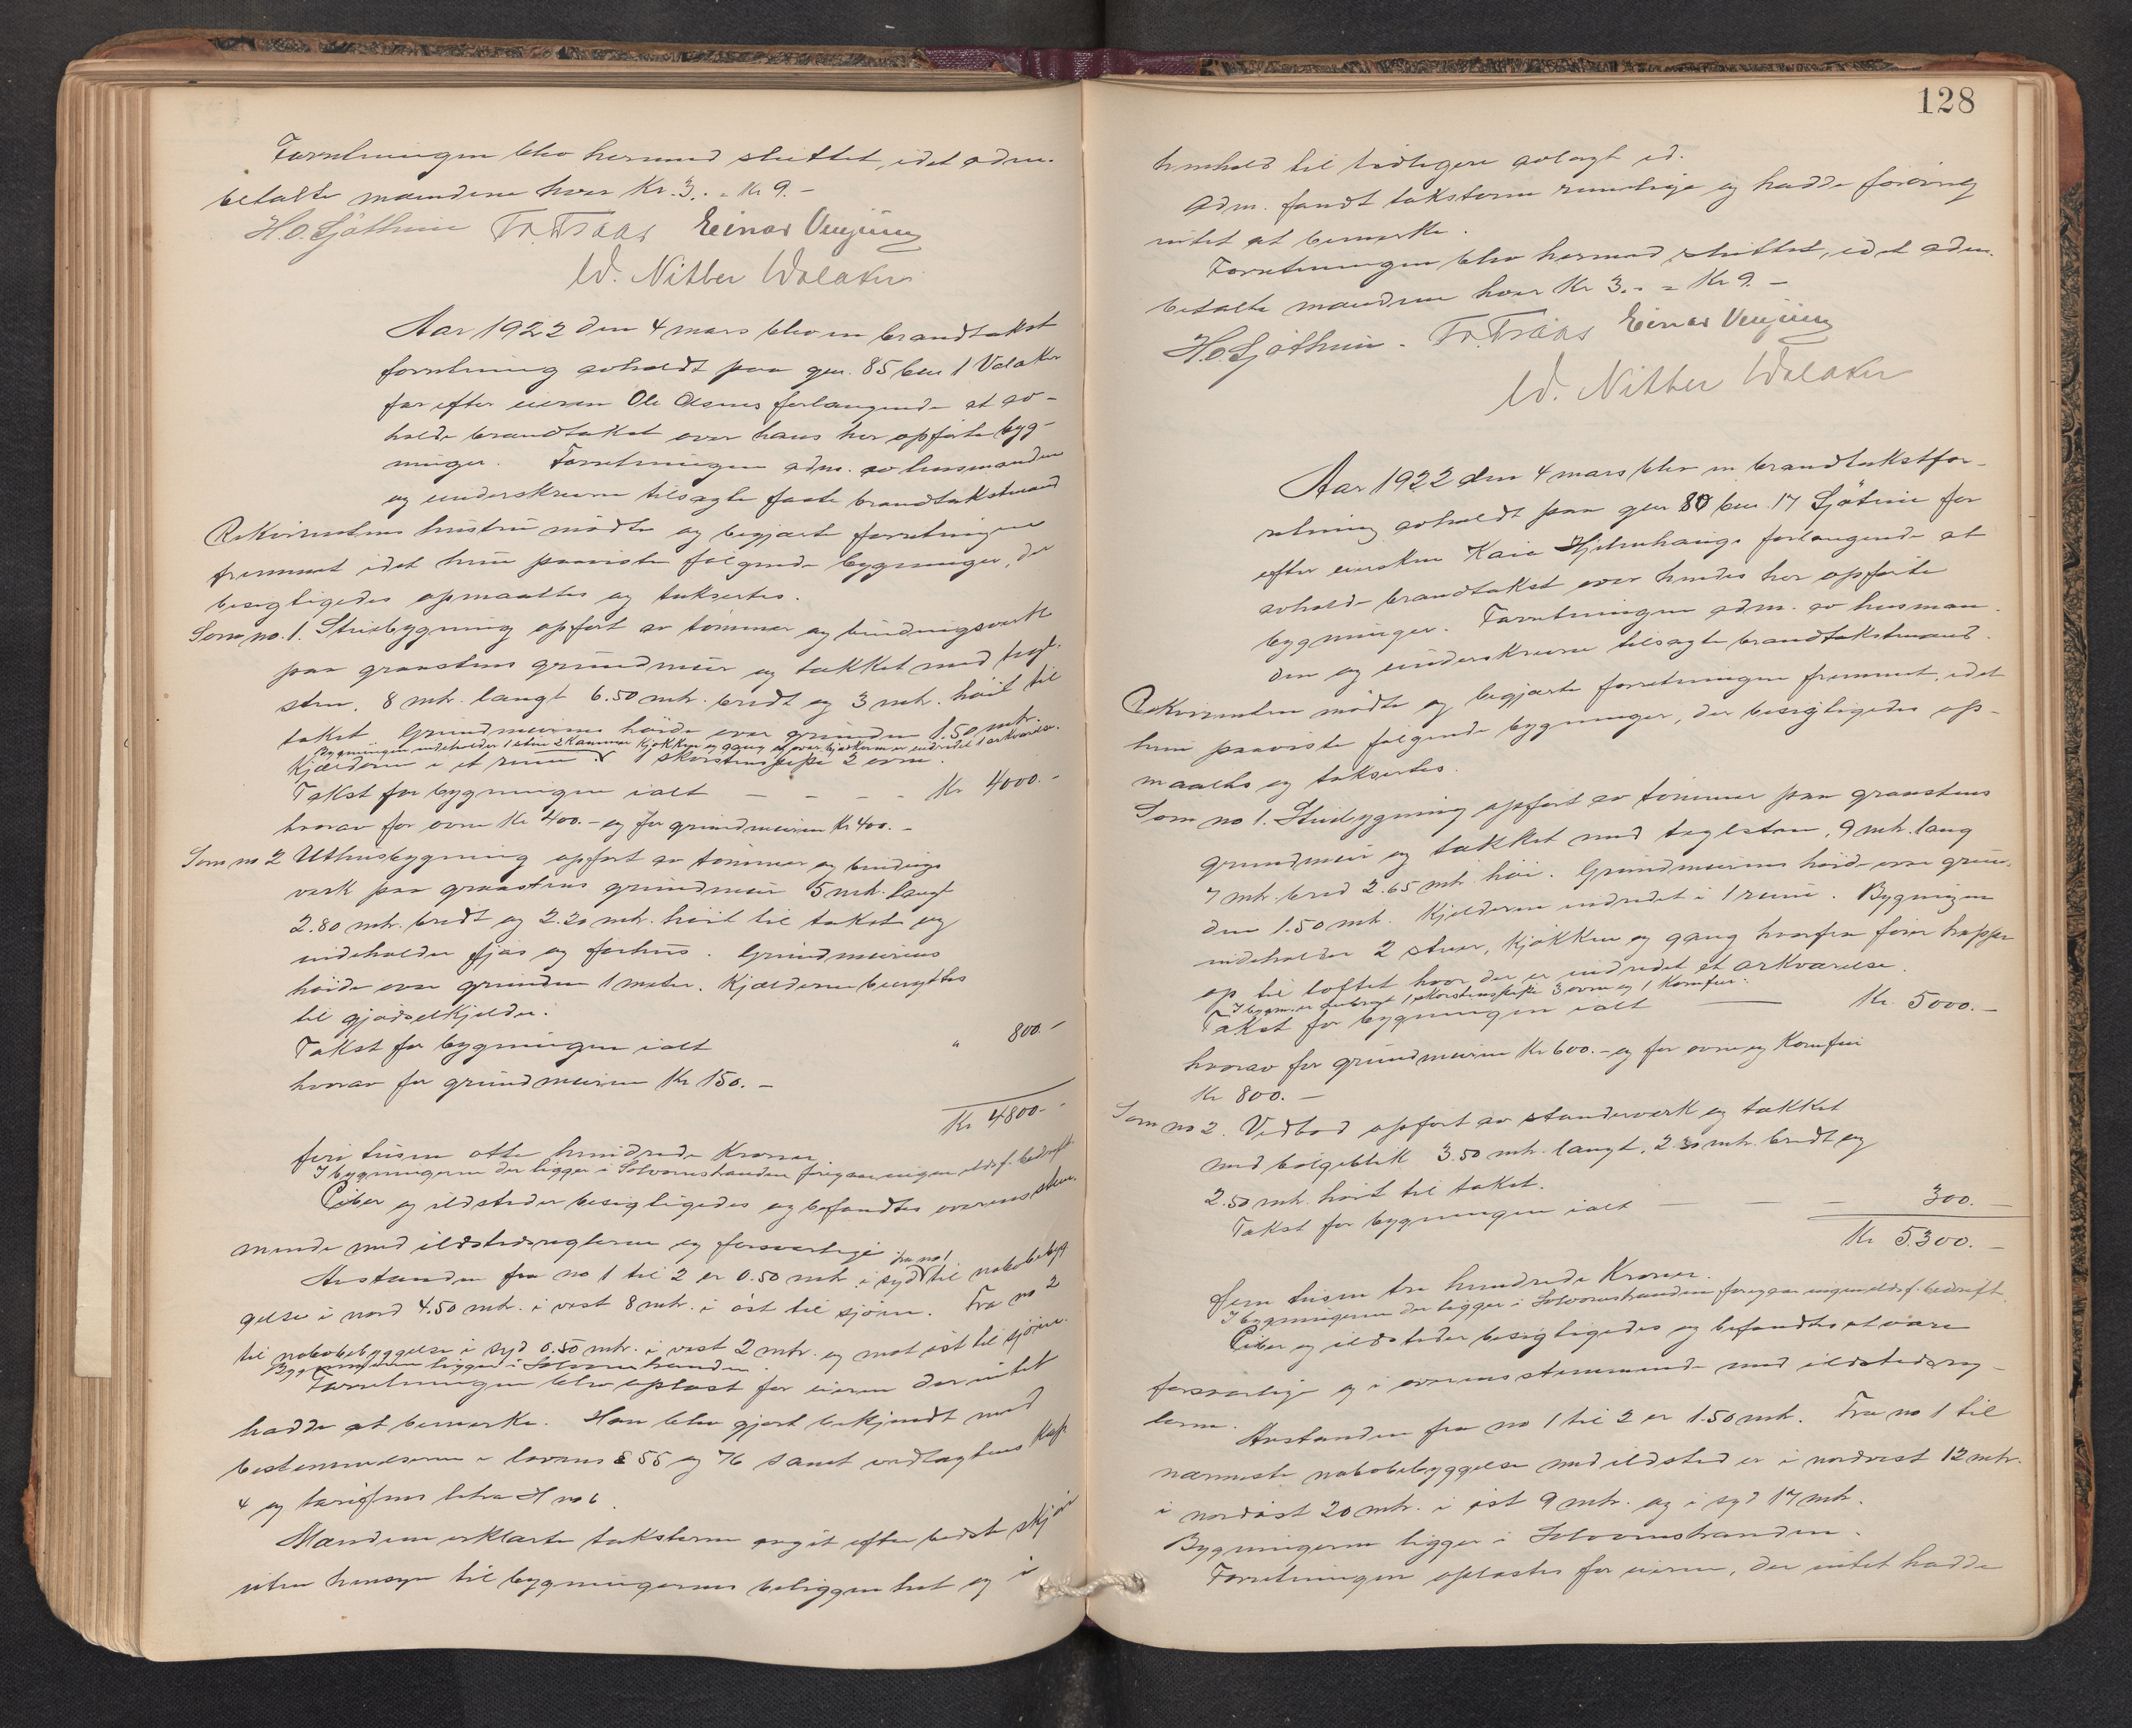 Forretningen blev hermed sluttet, idet adm.
betalte mændene hver Kr. 3.- = Kr 9.-
H.O. Sjøthun Fr. Traas Einar Venjum
W. Nitter Walaker
Aar 1922 den 4 mars blev en brandtakst
forretning avholdt paa gnr. 85 bnr 1 Valaker
før efter eieren Ole Olsens forlangende at av-
holde brandtakst over hans her opførte byg-
ninger. Forretningen adm. av lensmanden
og underskrevne tilsagte faste brandtakstmænd
Rekvirentens hustru mødte og begjærte forretningen
fremmet idet hun paaviste følgende bygninger, der
besigtigedes opmaaltes og taksertes.
Som no. 1. Stuebygning opført av tømmer og bindingsverk
paa graastens grundmur og tækket med tegl-
sten, 8 mtr. langt 6.50 mtr. bredt og 3 mtr. høit til
taket. Grundmurens høide over grunden 1.50 mtr.
Bygningen indeholder 1 stue 2 kammer kjøkken og gang og over kjøkkenen er indredet 1 arkværelse.
Kjælderen i et rum. 1 skorstenspipe 2 ovne.
Takst for bygningen ialt - - - - Kr 4000.-
hvorav for ovne Kr 400.- og for grundmuren Kr 400.-
Som no 2 Uthusbygning opført av tømmer og bindings
verk paa graastens grundmur 5 mtr. langt
2.80 mtr. bredt og 2.20 mtr. høit til taket og
indeholder fjøs og forhus. Grundmurens
høide over grunden 1 meter. Kjælderen benyttes
til gjødselkjelder.
Takst for bygningen ialt " 800.-
hvorav for grundmuren Kr 150.-
Kr 4800.-
fire tusen otte hundrede Kroner.
I bygningerne der ligger i Solvornstranden foregaar ingen ildsf. bedrift
Piber og ildsteder besigtigedes og befandtes overensstem-
mende med ildstedsreglerne og forsvarlige.
Avstanden fra no 1 til 2 er 0.50 mtr. i syd fra no 1 til nabobebyg
gelse i nord 4.50 mtr. i vest 8 mtr. i øst til sjøen. Fra no 2
til nabobebyggelse i syd 0.50 mtr. i vest 2 mtr. og mot øst til sjøen.
Bygningerne ligger i Solvornstranden.
Forretningen blev oplæst for eieren der intet
hadde at bemerke. Han blev gjort bekjendt med
bestemmelserne i lovens § 55 og 76 samt vedtægtens Kap
4 og tariffens litra H no 6.
Mændene erklærte taksterne avgit efter bedste skjøn
uten hensyn til bygningernes beliggenhet og i
128
henhold til tidligere avlagt ed.
Adm. fandt taksterne rimelige og hadde forøvrig
intet at bemerke.
Forretningen blev hermed sluttet, idet adm.
betalte mændene hver Kr 3.- = Kr 9.-
H.O. Sjøthun - Fr. Traas Einar Venjum
W. Nitter Walaker
Aar 1922 den 4 mars blev en brandtakstfor-
retning avholdt paa gnr 80 bnr. 17 Sjøtun før
efter eiersken Kaia Hjelmhaugs forlangende at
avholde brandtakst over hendes her opførte
bygninger. Forretningen adm. av lensman-
den og underskrevne tilsagte brandtakstmænd.
Rekvirenten mødte og begjærte forretningen fremmet, idet
hun paaviste følgende bygninger, der besigtigedes op-
maaltes og taksertes.
Som no 1. Stuebygning opført av tømmer paa graastens
grundmur og tækket med teglsten, 9 mtr. lang
7 mtr. bred 2.65 mtr. høi. Grundmurens høide over grun-
den 1.50 mtr. Kjelderen indredet i 1 rum. Bygningen
indeholder 2 stuer, kjøkken og gang hvorfra fører trappe
op til loftet hvor der er indredet et arkværelse.
I bygn. er anbragt 1 skorstenspipe 3 ovne og 1 Komfur.
Takst for bygningen ialt - Kr. 5000.-
hvorav for grundmuren Kr 600.- og for ovne og Komfur
Kr 800.-
Som no 2. Vedbod opført av stenderverk og tækket
med bølgeblik 3.50 mtr. langt, 2.30 mtr. bredt og
2.50 mtr. høit til taket.
Takst for bygningen ialt - - - 300.-
Kr 5300.-
Fem tusen tre hundrede Kroner.
I bygningerne der ligger i Solvornstranden foregaar ingen ildsf. bedrift.
Piber og ildsteder besigtigedes og befandtes at være
forsvarlige og i overensstemmende med ildstedsreg-
lerne.
Avstanden fra no 1 til 2 er 1.50 mtr. Fra no 1 til
nærmeste nabobebyggelse med ildsted er i nordvest 12 mtr.
i nordøst 20 mtr. i øst 9 mtr. og i syd 17 mtr.
Bygningerne ligger i Solvornstranden.
Forretningen oplæstes for eieren, der intet hadde